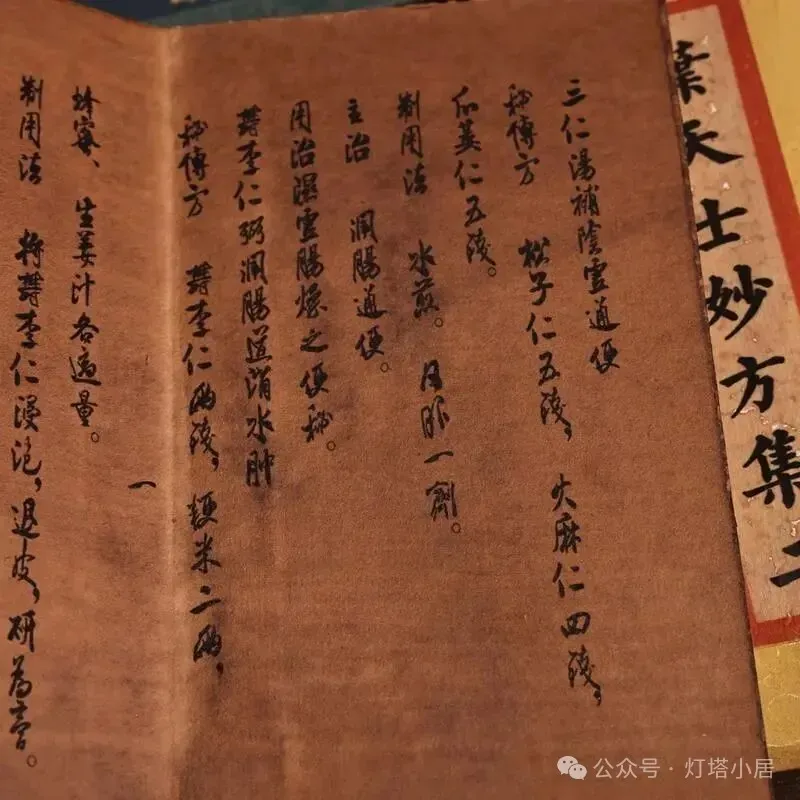 三仁湯補陰虛通便
秘傳方 松子仁五錢，火麻仁四錢，
瓜蔞仁五錢。
制用法 水煎。日服一劑。
主治 潤腸通便。
用治濕虛腸燥之便秘。
李仁粥潤腸道消水肿
秘傳方 李仁兩錢，粳米二兩，
蜂蜜、生姜汁各適量。
制用法 将李仁浸泡，退皮，研為膏。
一
葉天士妙方集二
公众号·灯塔小居